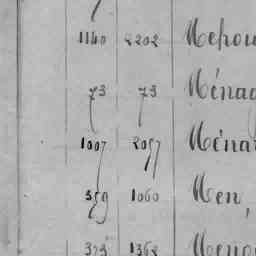 1140 2202 Mehou
73 73 Ménag
1007 2057 Ménar
359 1060 Men,
323 1362